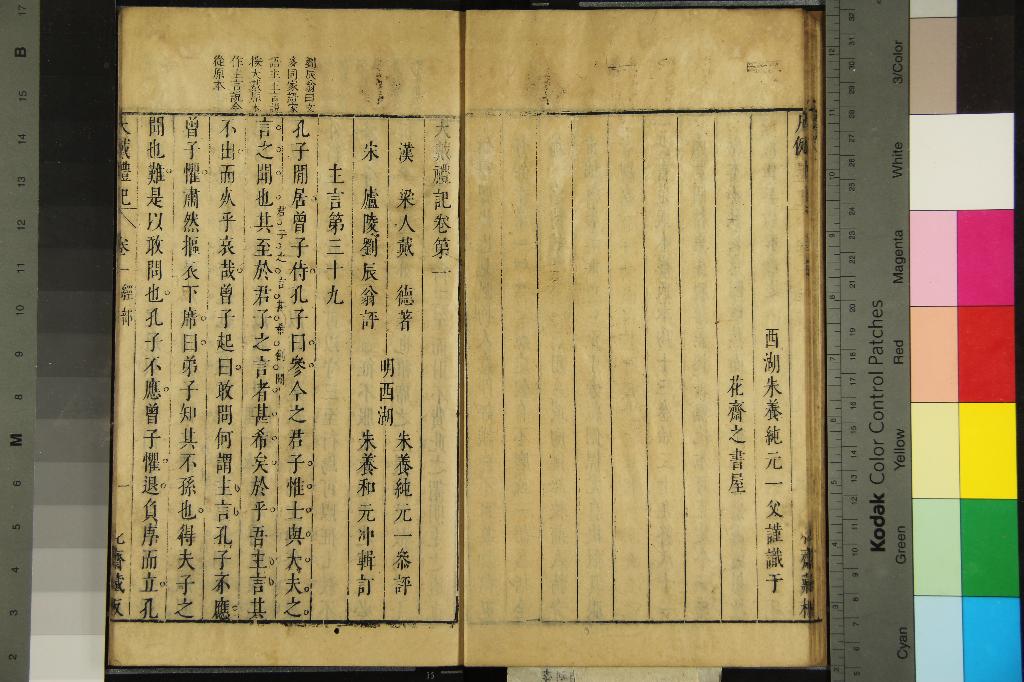 西湖朱養純元一父謹識于
花齋之書屋
大戴禮記卷第一
漢 梁人戴 德著
宋 廬陵劉辰翁評
明西湖
朱養純元一叅評
朱養和元冲輯訂
主言第三十九
孔子閒居曾子侍孔子曰參今之君子惟士與大夫之
言之聞也其至於君子之言者甚希矣於乎吾主言其
不出而死乎哀哉曾子起曰敢問何謂主言孔子不應
曾子懼肅然摳衣下席曰弟子知其不孫也得夫子之
閒也難是以敢問也孔子不應曾子懼退負序而立孔
劉辰翁曰文
語主主言說
按大戴原本
作主言說今
從原本
大戴禮記
卷一
經部
一
花齋藏板
Kodak Color Control Patches
3/Color
White
Magenta
Red
Yellow
Green
Cyan
B
M